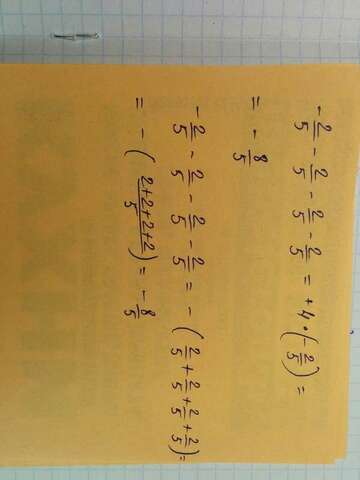 -2/5 - 2/5 - 2/5 - 2/5 = +4·(-2/5) =
= - 8/5
-2/5 - 2/5 - 2/5 - 2/5 = - (2/5 + 2/5 + 2/5 + 2/5) =
= - ((2+2+2+2)/5) = - 8/5